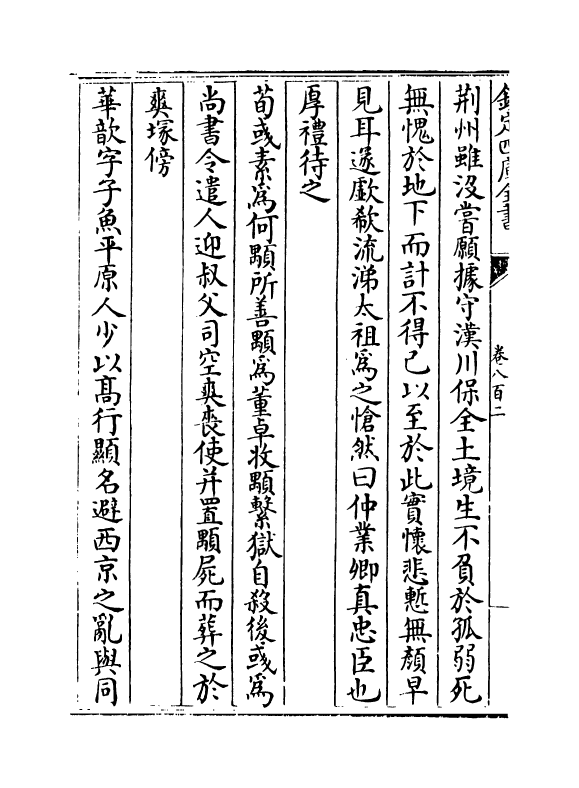 欽定四庫全書
卷八百二
荆州雖没嘗願據守漢川保全土境生不負於孤弱死
無愧於地下而計不得已以至於此實懷悲慙無顔早
見耳遂歔欷流涕太祖為之愴然曰仲業卿真忠臣也
厚禮待之
荀彧素為何顒所善顒為董卓收顒繫獄自殺後彧為
尚書令遣人迎叔父司空爽喪使并置顒屍而葬之於
爽塚傍
華歆字子魚平原人少以髙行顯名避西京之亂與同